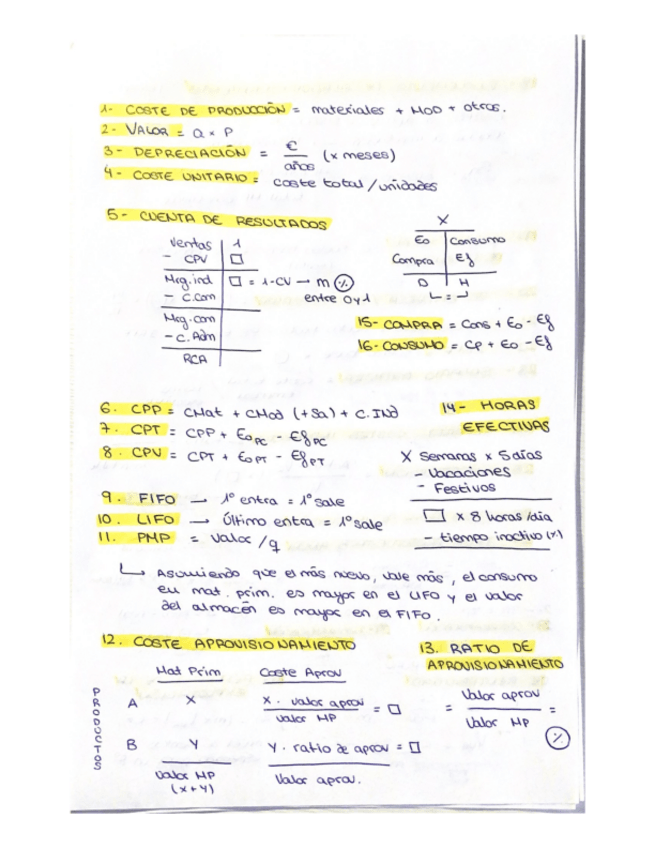 1- COSTE DE PRODUCCIÓN = materiales + MOD + otros.
2- VALOR = Q x P
3- DEPRECIACIÓN = €/años (x meses)
4- COSTE UNITARIO = coste total / unidades
5- CUENTA DE RESULTADOS
Ventas 1
- CPV □
Mrg.ind □ = 1-CV → m (%)
- C.Com entre 0 y 1
Mrg.com
- C.Adm
RCA
X
Eo Consumo
Compra Ef
D H
=
15- COMPRA = Cons + Eo - Ef
16- CONSUMO = CP + Eo - Ef
6. CPP = CMat + CMod (+Sa) + C.IND
7. CPT = CPP + Eo PC - Ef PC
8. CPV = CPT + Eo PT - Ef PT
14- HORAS
EFECTIVAS
X Semanas x 5 días
- Vacaciones
- Festivos
□ x 8 horas/día
- tiempo inactivo (x)
9. FIFO → 1º entra = 1º sale
10. LIFO → Último entra = 1º sale
11. PMP = valor / q
↳ Asumiendo que el más nuevo, vale más, el consumo
en mat. prim. es mayor en el LIFO y el valor
del almacén es mayor en el FIFO.
12. COSTE APROVISIONAMIENTO
Mat Prim Coste Aprov
PRODUCTOS
A X X · valor aprov / valor MP = □
B Y Y · ratio de aprov = □
Valor MP Valor aprov.
(x+y)
13. RATIO DE
APROVISIONAMIENTO
= Valor aprov / Valor MP =
(%)